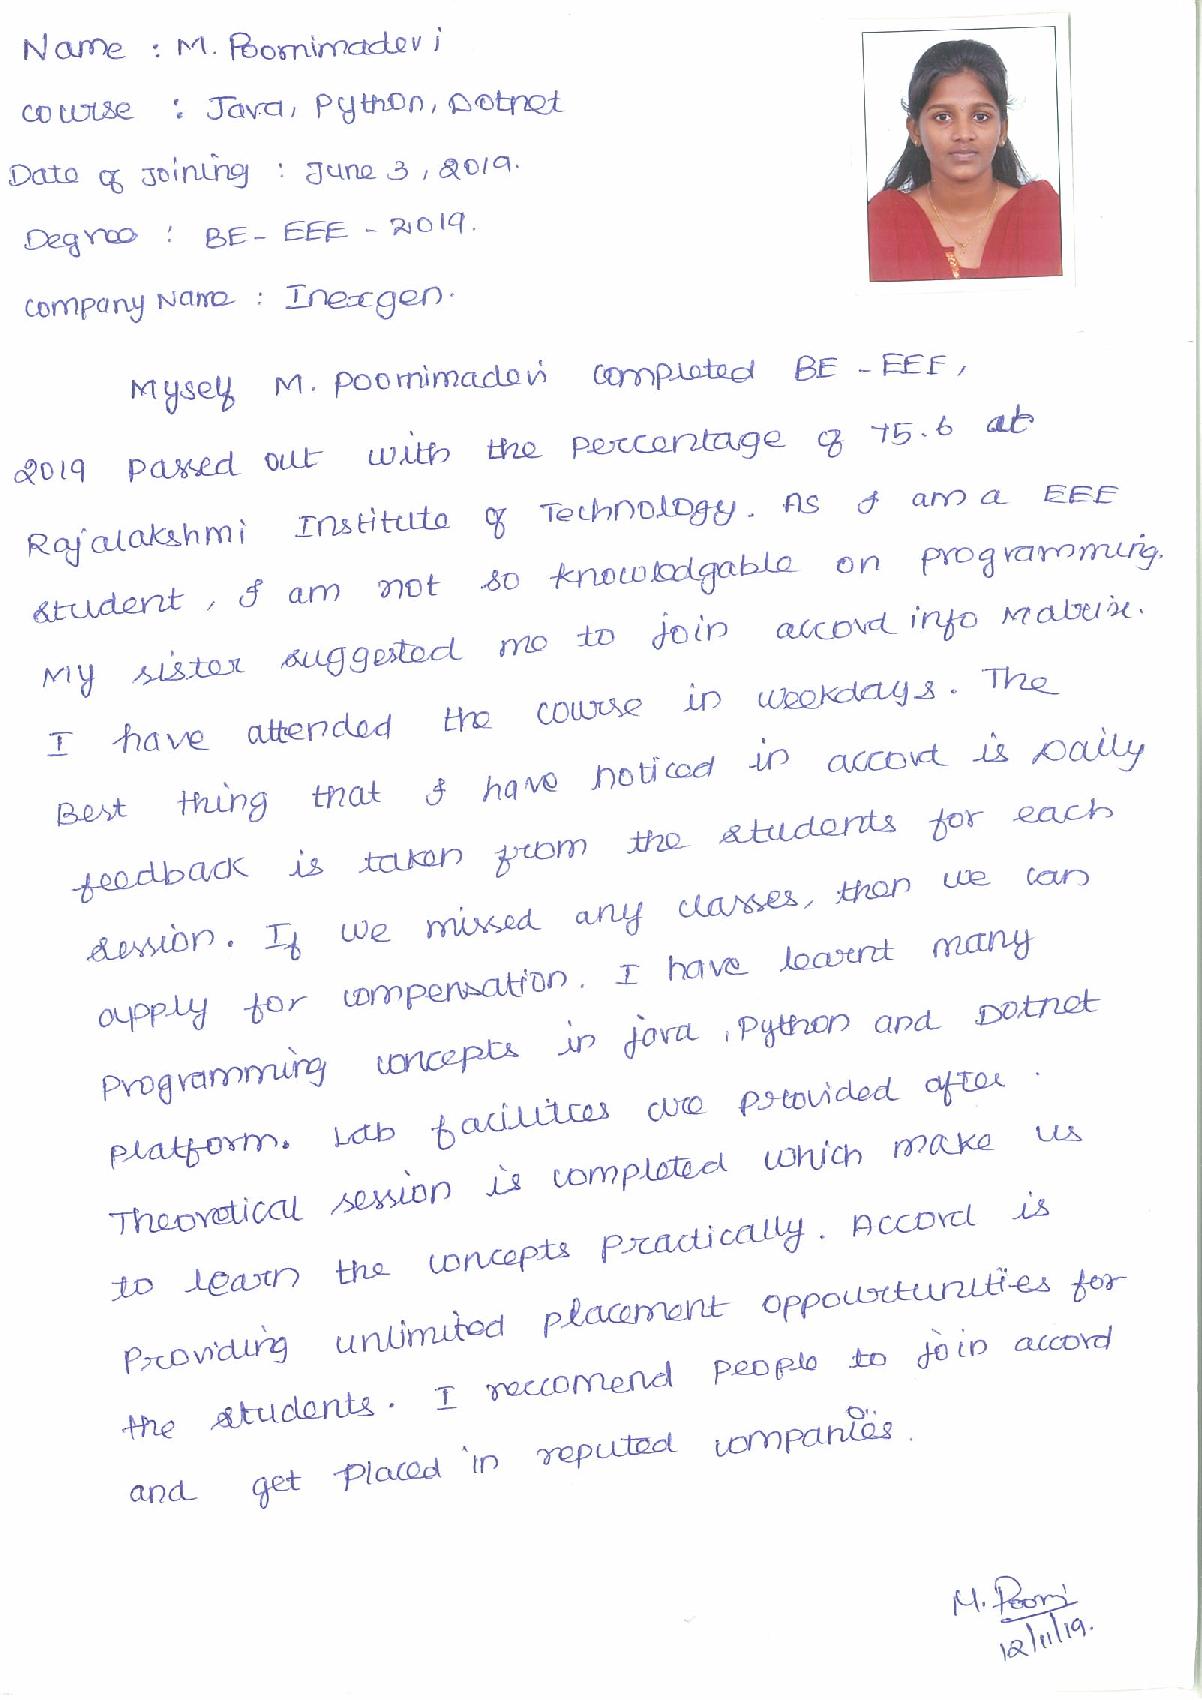 Name : M. Poornimadevi
Course : Java, Python, Dotnet
Date of Joining : June 3, 2019.
Degree : BE - EEE - 2019.
Company Name : Inexgen.
Myself M. Poornimadevi completed BE - EEE,
2019 passed out with the percentage of 75.6 at
Rajalakshmi Institute of Technology. As I am a EEE
student, I am not so knowledgable on programming.
My sister suggested me to join accord info Matrix.
I have attended the course in weekdays. The
Best thing that I have noticed in accord is Daily
feedback is taken from the students for each
session. If we missed any classes, then we can
apply for compensation. I have learnt many
Programming concepts in java, Python and Dotnet
platform. Lab facilities are provided after.
Theoretical session is completed which make us
to learn the concepts practically. Accord is
Providing unlimited placement oppourtunities for
the students. I reccomend people to join accord
and get placed in reputed companies.
M. Poorni
12/11/19.